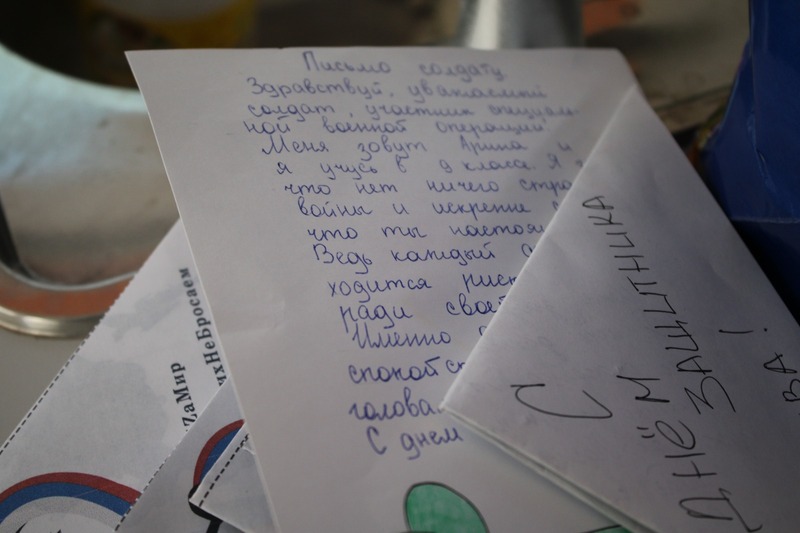 Письмо солдату
Здравствуй, уважаемый
солдат, участник специаль-
ной военной операции
Меня зовут Арина и
я учусь в 9 классе. Я
что нет ничего
войны и искренне
что ты
Ведь каждый
ходится
ради своей
Именно
С днем
С
ДНЁМ
ЗАЩИТНИКА
ВА!
ZаМир
ихНеБросаем